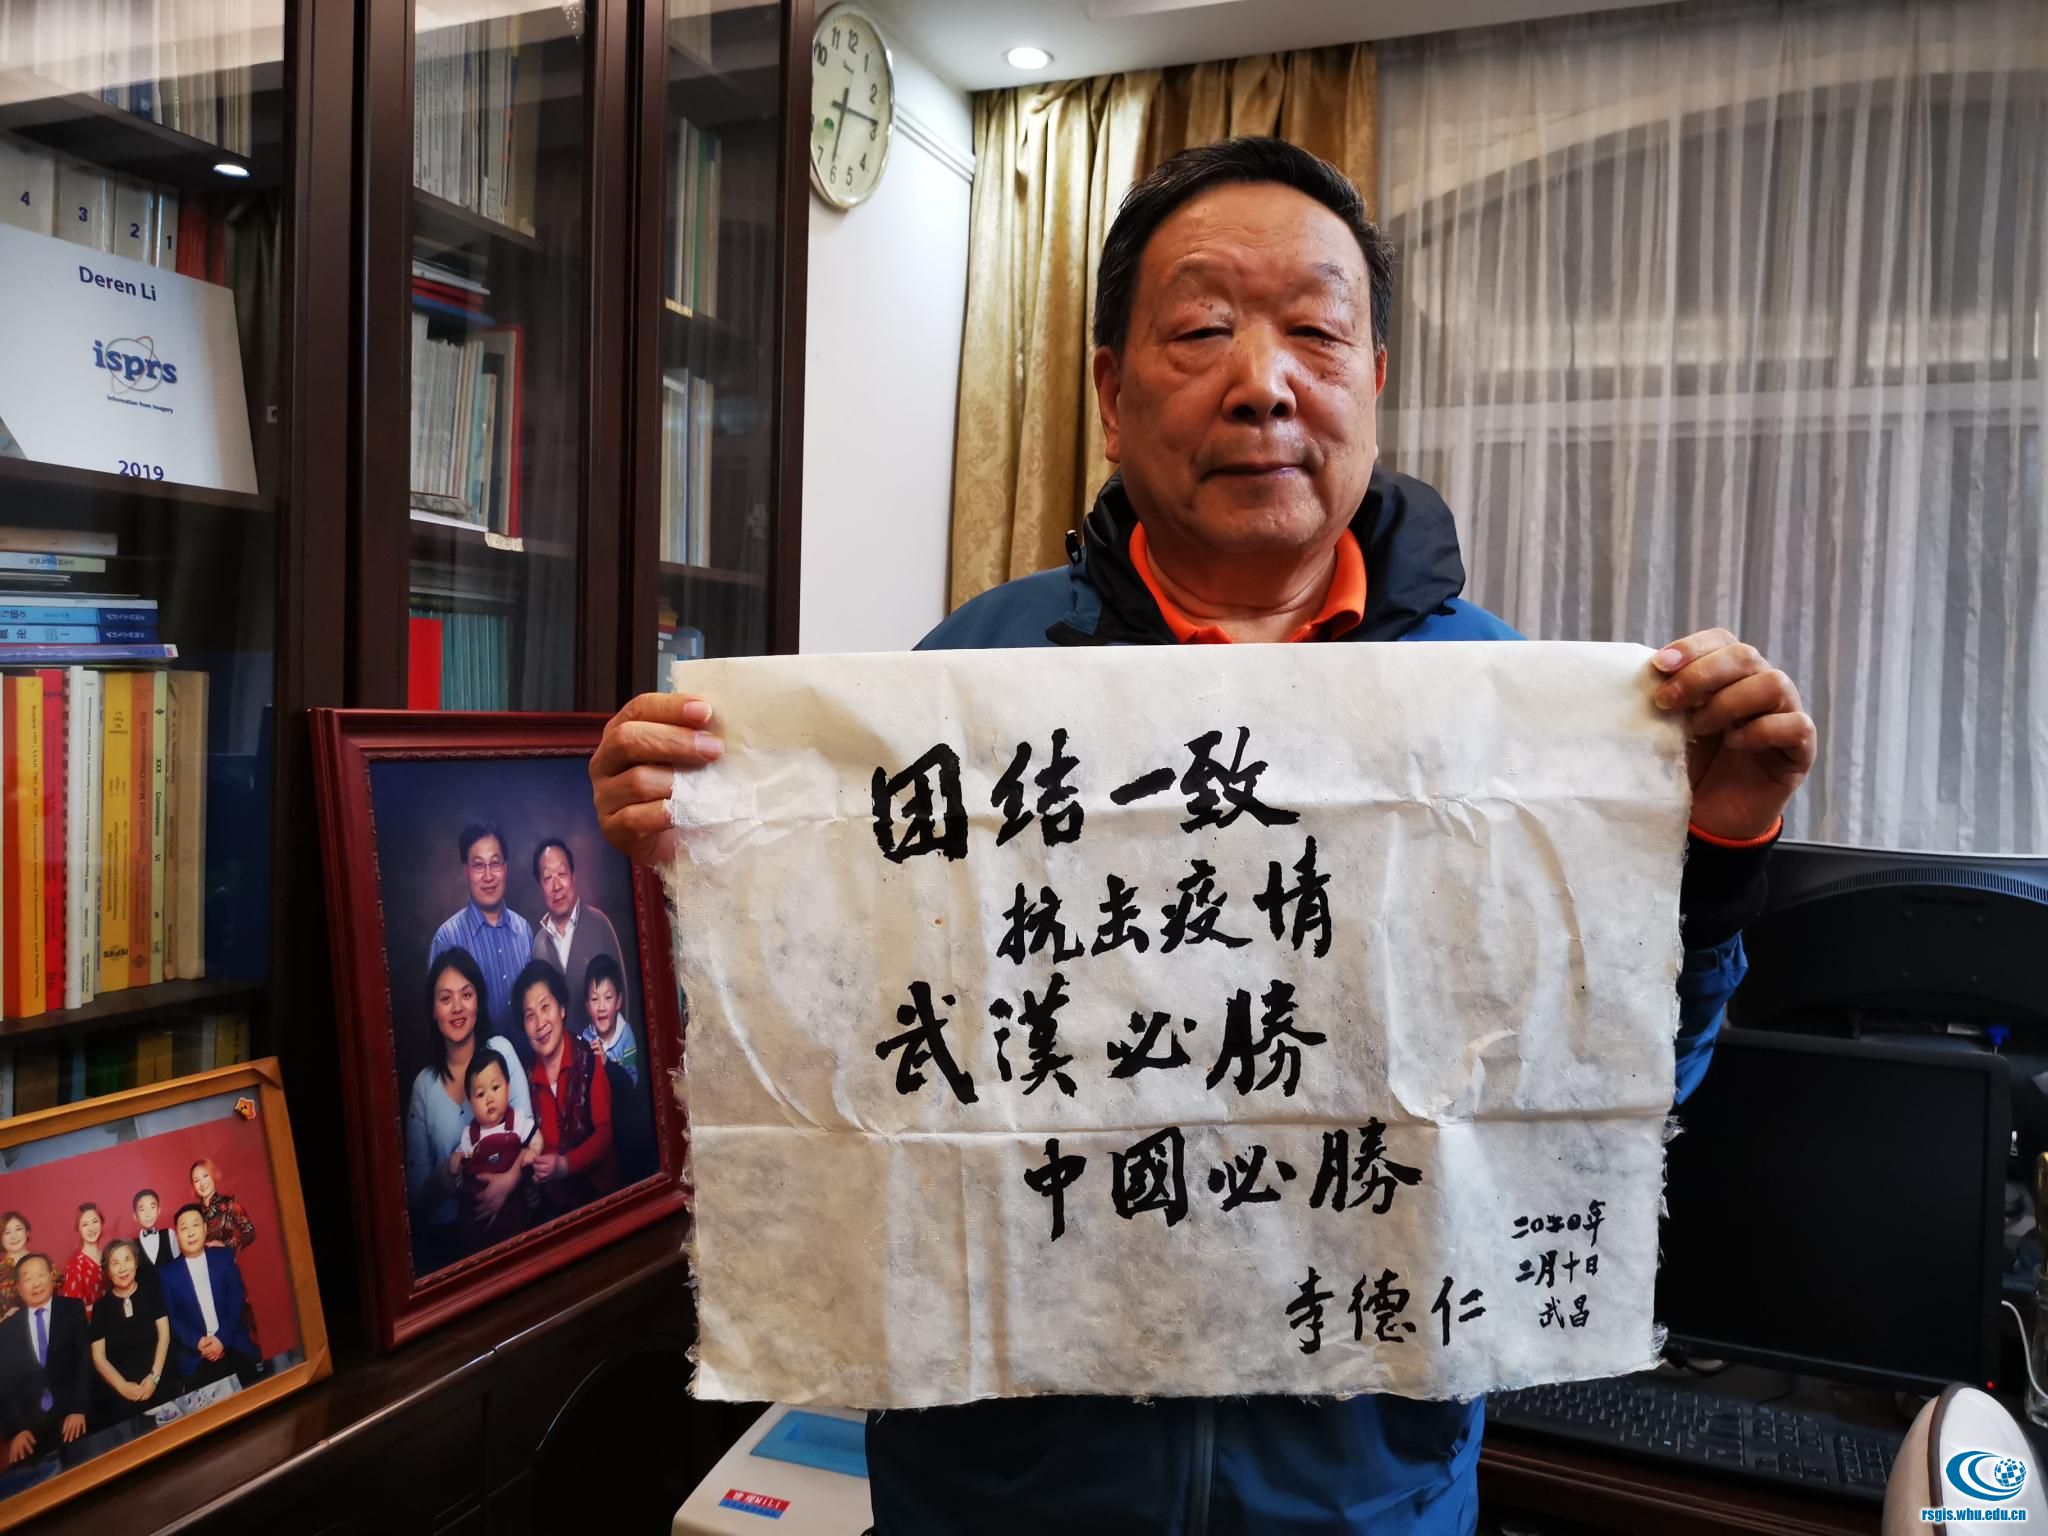 11 12 1
10 2
3
7 4
6 5
4 3 2 1
Deren Li
isprs
Information from Imagery
2019
团结一致
抗击疫情
武漢必勝
中國必勝
李德仁
二〇二〇年
二月十日
武昌
rsgis.whu.edu.cn